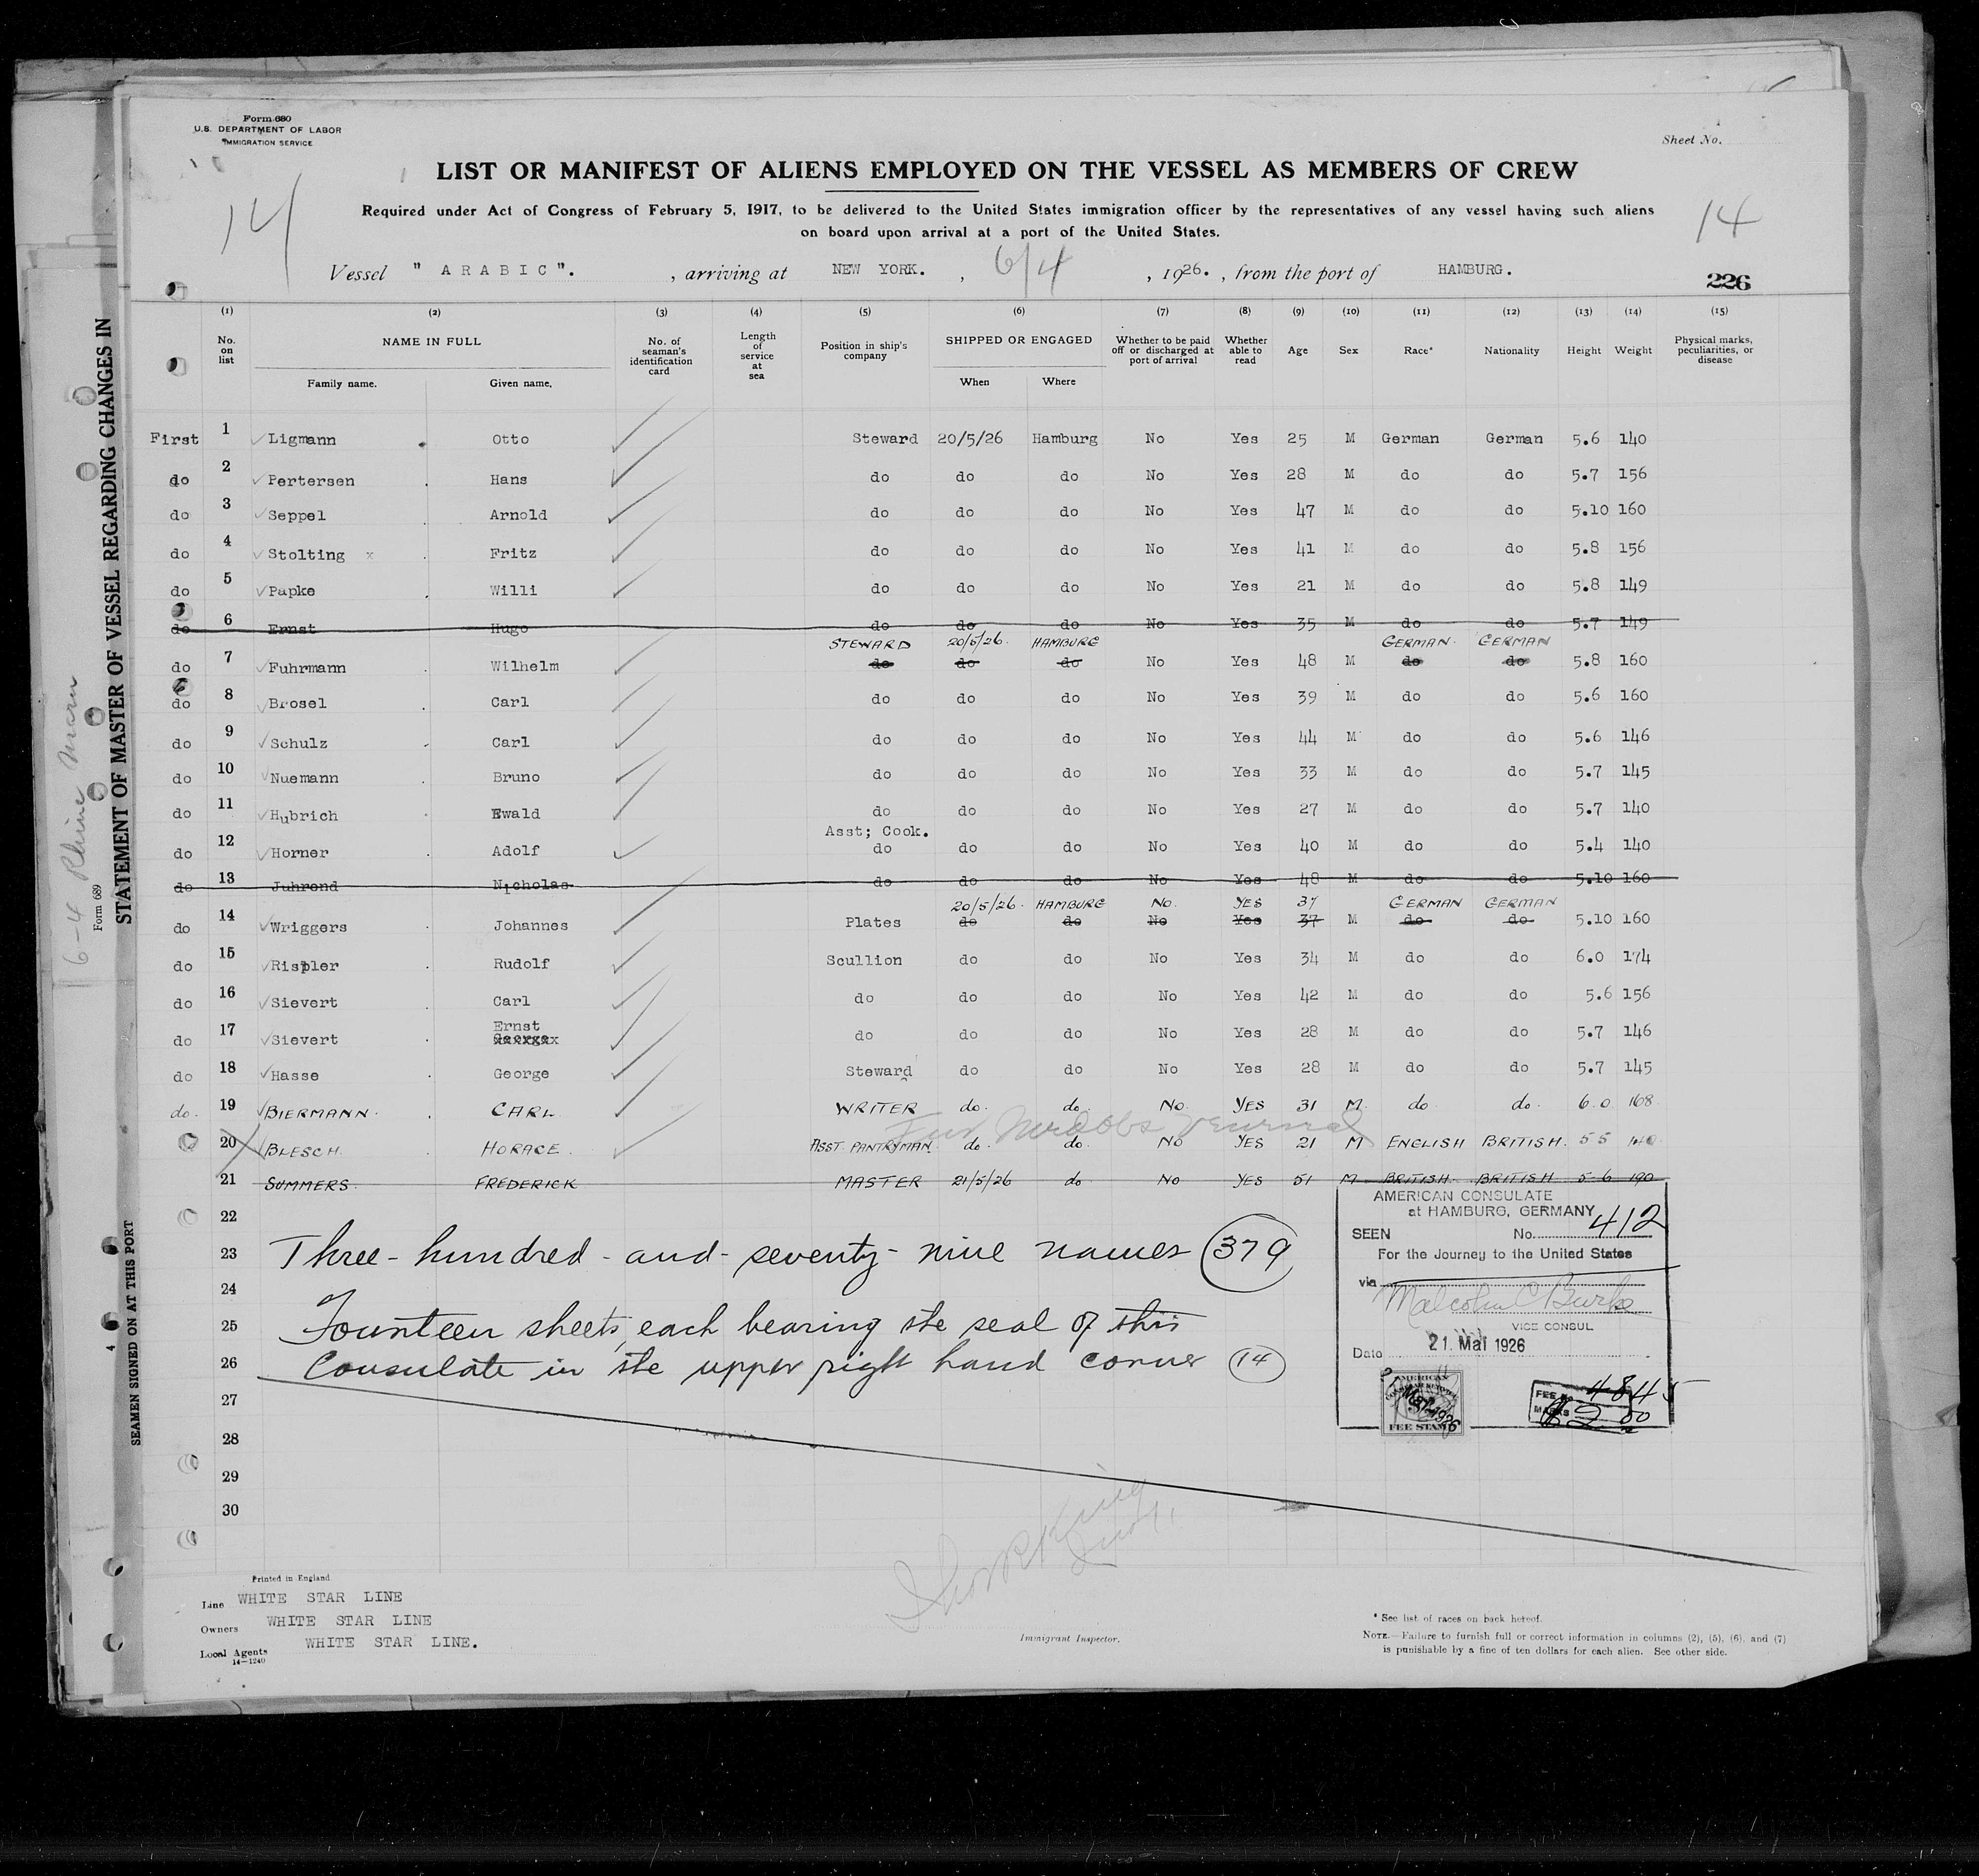 Form 680
U.S. DEPARTMENT OF LABOR
IMMIGRATION SERVICE
Sheet No.
LIST OR MANIFEST OF ALIENS EMPLOYED ON THE VESSEL AS MEMBERS OF CREW
Required under Act of Congress of February 5, 1917, to be delivered to the United States immigration officer by the representatives of any vessel having such aliens
on board upon arrival at a port of the United States.
14
14
Vessel " ARABIC". , arriving at NEW YORK. , 6/4 , 1926. , from the port of HAMBURG.
226
(1) (2) (3) (4) (5) (6) (7) (8) (9) (10) (11) (12) (13) (14) (15)
No. on list
NAME IN FULL
Family name. Given name.
No. of seaman's identification card
Length of service at sea
Position in ship's company
SHIPPED OR ENGAGED
When Where
Whether to be paid off or discharged at port of arrival
Whether able to read
Age
Sex
Race*
Nationality
Height
Weight
Physical marks, peculiarities, or disease
First 1 Ligmann Otto Steward 20/5/26 Hamburg No Yes 25 M German German 5.6 140
do 2 Pertersen Hans do do do No Yes 28 M do do 5.7 156
do 3 Seppel Arnold do do do No Yes 47 M do do 5.10 160
do 4 Stolting x Fritz do do do No Yes 41 M do do 5.8 156
do 5 Papke Willi do do do No Yes 21 M do do 5.8 149
do 6 Ernst Hugo do do do No Yes 35 M do do 5.7 149
STEWARD 20/5/26. HAMBURG GERMAN. GERMAN
do 7 Fuhrmann Wilhelm do do do No Yes 48 M do do 5.8 160
do 8 Brosel Carl do do do No Yes 39 M do do 5.6 160
do 9 Schulz Carl do do do No Yes 44 M do do 5.6 146
do 10 Nuemann Bruno do do do No Yes 33 M do do 5.7 145
do 11 Hubrich Ewald do do do No Yes 27 M do do 5.7 140
Asst; Cook.
do 12 Horner Adolf do do do No Yes 40 M do do 5.4 140
do 13 Juhrend Nicholas do do do No Yes 48 M do do 5.10 160
20/5/26. HAMBURG No. YES 37 GERMAN GERMAN
do 14 Wriggers Johannes Plates do do No Yes 37 M do do 5.10 160
do 15 Rispler Rudolf Scullion do do No Yes 34 M do do 6.0 174
do 16 Sievert Carl do do do No Yes 42 M do do 5.6 156
Ernst
do 17 Sievert George do do do No Yes 28 M do do 5.7 146
do 18 Hasse George Steward do do No Yes 28 M do do 5.7 145
do. 19 BIERMANN. CARL WRITER do. do. No. YES 31 M. do do. 6.0 168
20 BLESCH. HORACE. ASST. PANTRYMAN. do. do. No YES 21 M ENGLISH BRITISH. 5 5 140
21 SUMMERS. FREDERICK MASTER 21/5/26 do No YES 51 M BRITISH. BRITISH 5-6 190
22
23 Three-hundred-and-seventy-nine names (379)
24
25 Fourteen sheets, each bearing the seal of this
26 Consulate in the upper right hand corner (14)
27
28
29
30
AMERICAN CONSULATE
at HAMBURG, GERMANY
SEEN No. 412
For the Journey to the United States
via
Malcolm C Burke
VICE CONSUL
Date 21. Mai 1926
AMERICAN
FEE STAMP
FEE No. 4845
MARKS $2.00
Printed in England
Line WHITE STAR LINE
Owners WHITE STAR LINE
Local Agents WHITE STAR LINE.
14—1240
Immigrant Inspector.
* See list of races on back hereof.
NOTE.—Failure to furnish full or correct information in columns (2), (5), (6), and (7)
is punishable by a fine of ten dollars for each alien. See other side.
STATEMENT OF MASTER OF VESSEL REGARDING CHANGES IN
Form 689
SEAMEN SIGNED ON AT THIS PORT
4
6-4